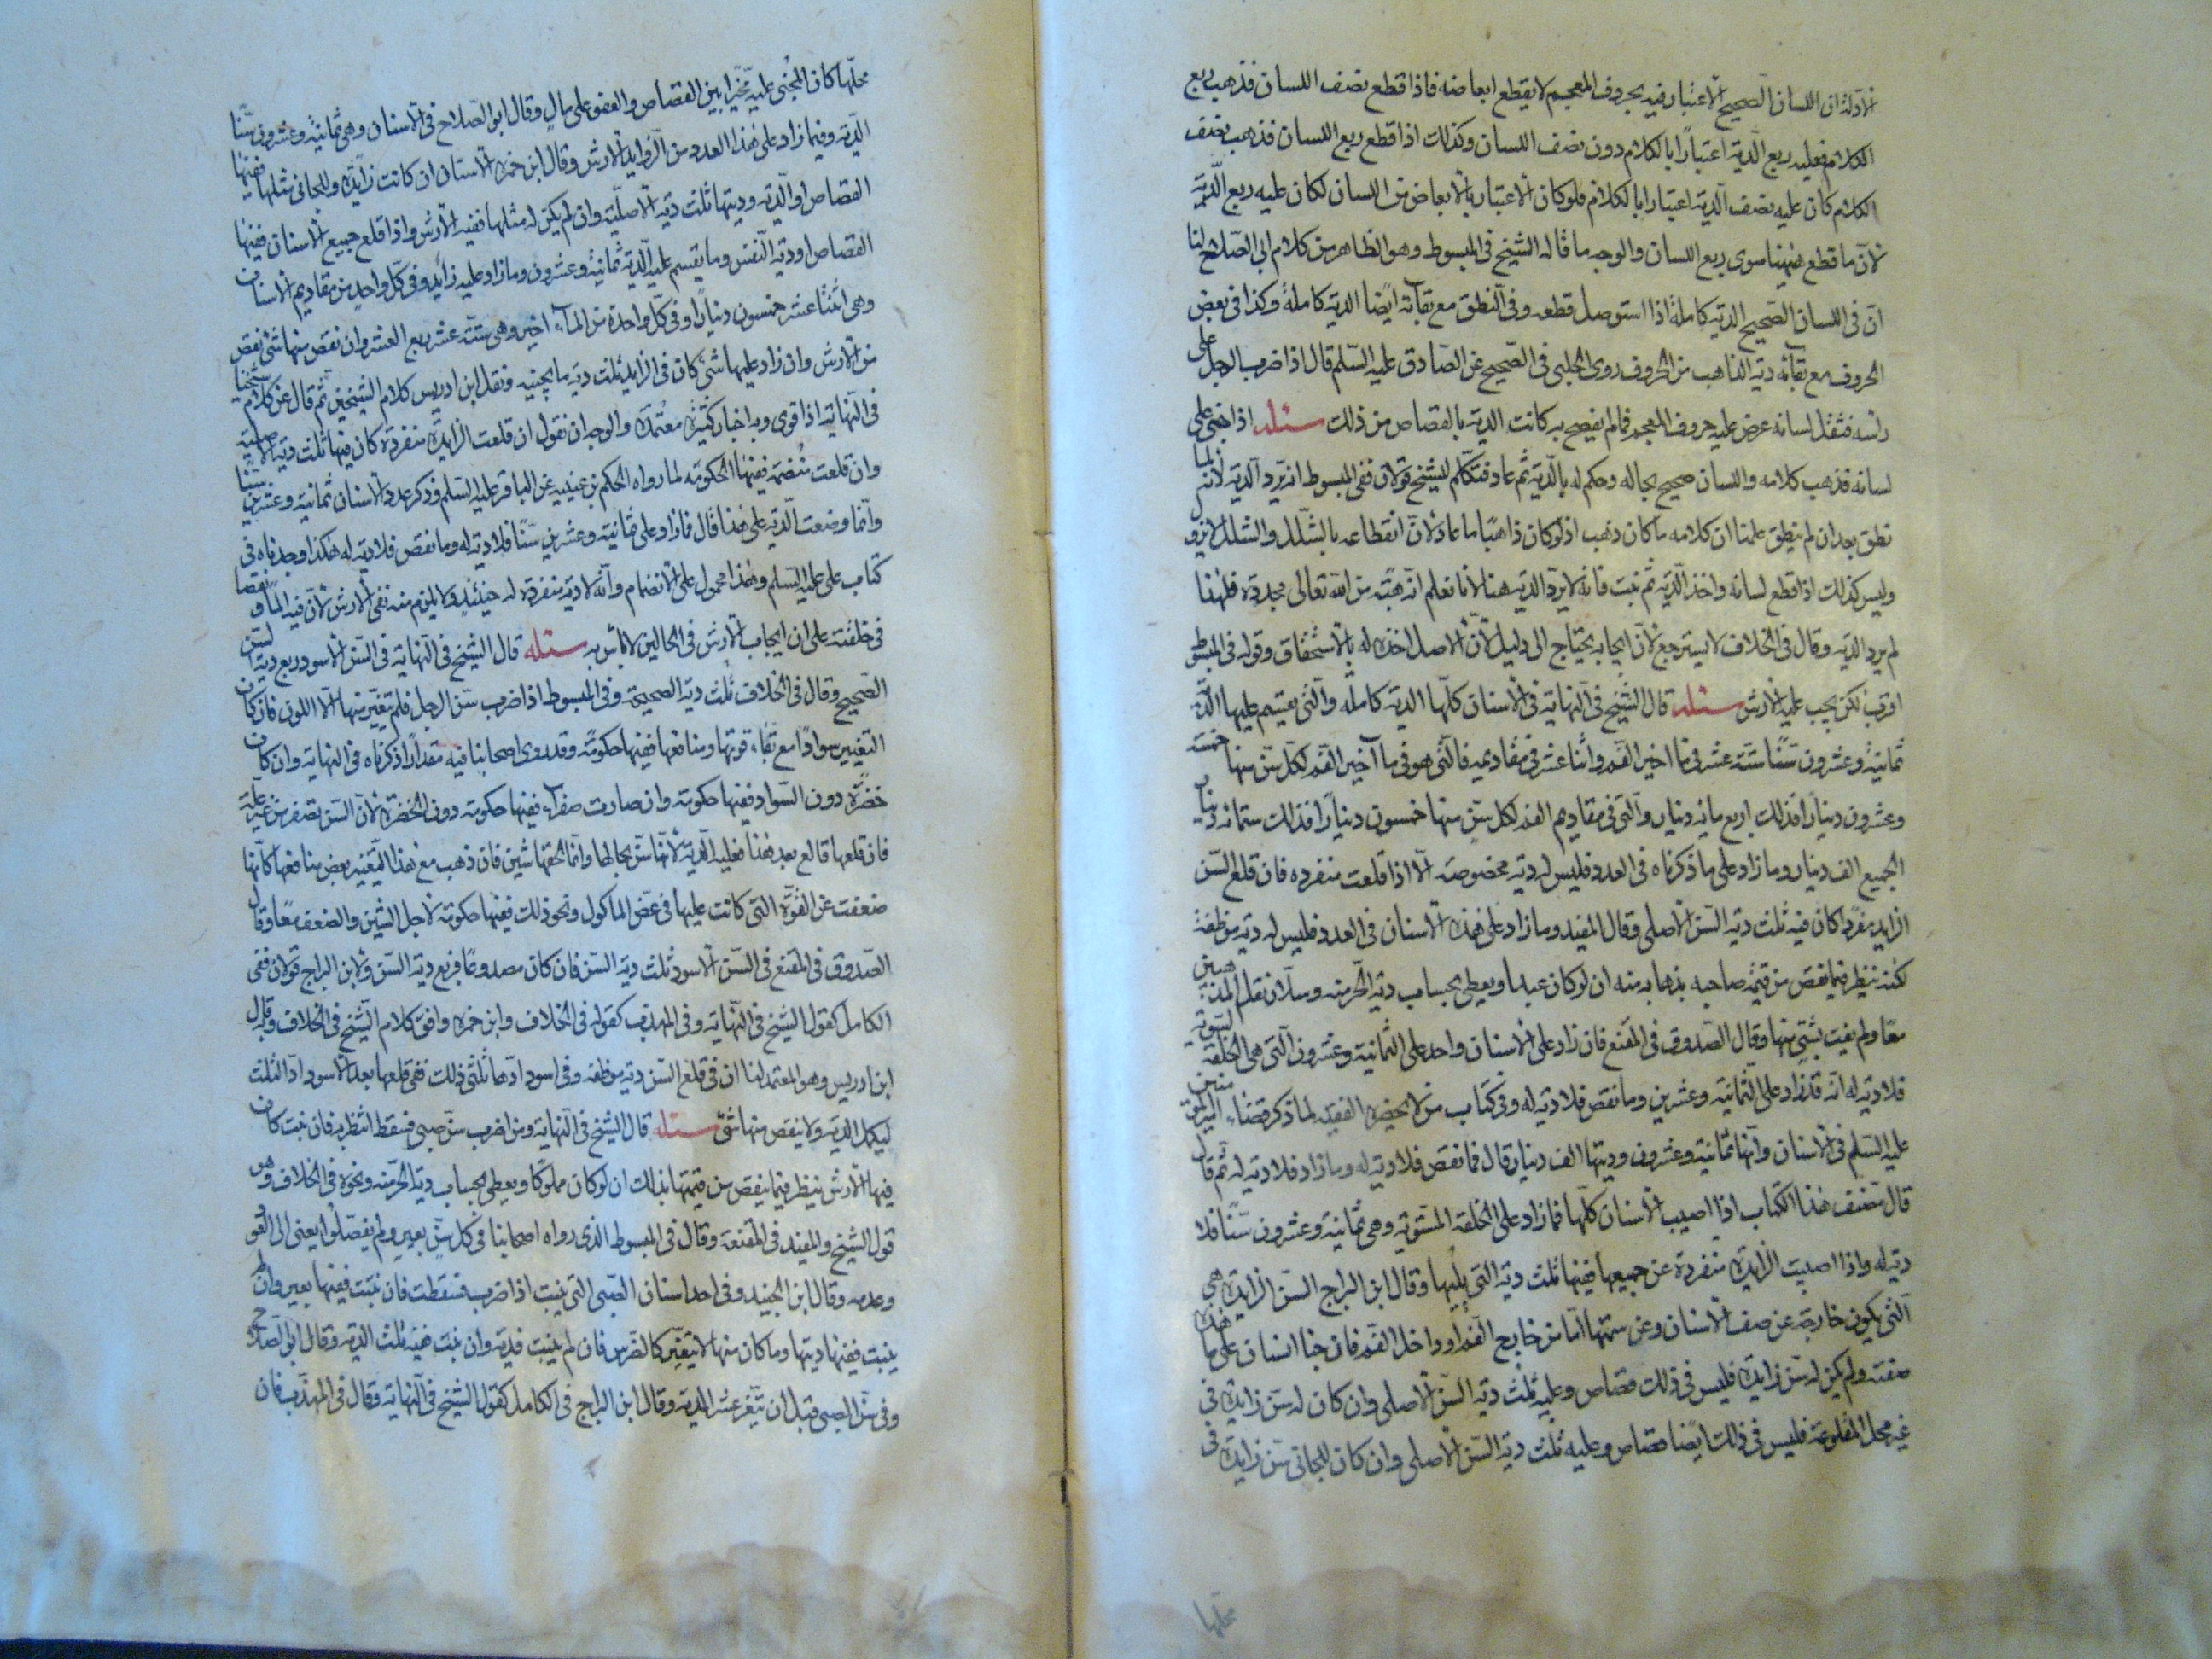 الأدلة ان اللسان الصحيح الاعتبار فيه بحروف المعجم لا يقطع ابعاضه فاذا قطع نصف اللسان فذهب ربع
الكلام فعليه ربع الدية اعتبارًا بالكلام دون نصف اللسان وكذلك اذا قطع ربع اللسان فذهب نصف
الكلام كان عليه نصف الدية اعتبارا بالكلام فلو كان الاعتبار بالابعاض من اللسان لكان عليه ربع الدية
لأن ما قطع ههنا سوى ربع اللسان والوجه ما قاله الشيخ في المبسوط وهو الظاهر من كلام ابي الصلاح لنا
ان في اللسان الصحيح الدية كاملة اذا استوصل قطعه وفي النطق مع بقائه ايضا الدية كاملة وكذا في بعض
الحروف مع بقائه دية الذاهب من الحروف روى الحلبي في الصحيح عن الصادق عليه السلم قال اذا ضرب الرجل على
راسه فثقل لسانه عرض عليه حروف المعجم فما لم يفصح به كانت الدية بالقصاص من ذلك مسئله اذا جنى على
لسانه فذهب كلامه واللسان صحيح بحاله وحكم له بالدية ثم عاد فتكلم للشيخ قولان ففي المبسوط انه يرد الدية لانه لما
نطق بعد ان لم ينطق علمنا ان كلامه ما كان ذهب اذ لو كان ذاهبًا ما عاد لان انقطاعه بالشلل والشلل لا يزول
وليس كذلك اذا قطع لسانه واخذ الدية ثم نبت فانه لا يرد الدية هنا لانا نعلم انه هبة من الله تعالى مجددة فلهذا
لم يرد الدية وقال في الخلاف لا يسترجع لان ايجابه يحتاج الى دليل لأن الاصل اخذه له بالاستحقاق وقوله في المبسوط
اقرب لكن يجب عليه الارش مسئله قال الشيخ في النهاية في الاسنان كلها الدية كاملة والتي يقسم عليها الدية
ثمانية وعشرون سنًا ستة عشر في ما اخير الفم واثنا عشر في مقاديمه فالتي هو في مآخير الفم لكل سن منها خمسة
وعشرون دينارًا فذلك اربع مائة دينار والتي في مقاديم الفم لكل سن منها خمسون دينارًا فذلك ستمائة دينار
الجميع الف دينار وما زاد على ما ذكرناه في العدد فليس له دية مخصوصة الا اذا قلعت منفرده فان قلع السن
الزايد مفردا كان فيه ثلث دية السن الاصلي وقال المفيد وما زاد على هذه الاسنان في العدد فليس له دية موظفة
لكنه ينظر فيما نقص من قيمة صاحبه بذهابه منه ان لو كان عبدا ويعطى بحساب دية الحر منه وسلار نقل المذهبين
معًا ولم يفت بشيء منها وقال الصدوق في المقنع فان زاد على الاسنان واحد على الثمانية وعشرون التي هي الخلقة السوية
فلا دية له انه قد زاد على الثمانية وعشرين وما نقص فلا دية له وفي كتاب من لا يحضره الفقيه لما ذكر قضاء امير المؤمنين
عليه السلم في الاسنان وانها ثمانية وعشرون وديتها الف دينار قال فما نقص فلا دية له وما زاد فلا دية له ثم قال
قال مصنف هذا الكتاب اذا اصيب الاسنان كلها فما زاد على الخلقة المستوية وهي ثمانية وعشرون سنًا فلا
دية له واذا اصيبت الزايدة منفردة عن جميعها ففيها ثلث دية التي يليها وقال ابن البراج السن الزايدة هي
التي يكون خارجة عن صف الاسنان وعن سمتها اما من خارج الفم او داخل الفم فان جنا انسان على ما هذه
صفته ولم يكن له سن زايدة فليس في ذلك قصاص وعليه ثلث دية السن الاصلي وان كان له سن زايدة في
غير محل المقلوعة فليس في ذلك ايضا قصاص وعليه ثلث دية السن الاصلي وان كان للجاني سن زايدة في
محلها
محلها كان المجني عليه مخيرا بين القصاص والعفو على مال وقال ابو الصلاح في الاسنان وهي ثمانية وعشرون سنًا
الدية وفيما زاد على هذا العدد من الزوايد الارش وقال ابن حمزه الاسنان ان كانت زايدة وللجاني مثلها ففيها
القصاص او الدية وديتها ثلث دية الاصلية وان لم يكن له مثلها ففيه الارش واذا قلع جميع الاسنان ففيها
القصاص او دية النفس وما يقسم عليه الدية ثمانية وعشرون وما زاد عليه زايد وفي كل واحد من مقاديم الاسنان
وهي اثنتا عشر خمسون دينارًا وفي كل واحدة من المآخير وهي ستة عشر ربع العشر وان نقص منها شئ نقص
من الارش وان زاد عليها شئ كان في الزايد ثلث دية ما بجنبه ونقل ابن ادريس كلام الشيخين ثم قال عن كلام شيخنا
في النهاية اذا قوى وبه اخبار كثيرة معتمدة والوجه ان نقول ان قلعت الزايدة منفردة كان فيها ثلث دية الاصلية
وان قلعت منضمة ففيها الحكومة لما رواه الحكم بن عتيبه عن الباقر عليه السلم وذكر عدد الاسنان ثمانية وعشرين سنًا
وانما وضعت الدية على هذا قال فما زاد على ثمانية وعشرين سنًا فلا دية له وما نقص فلا دية له هكذا وجدناه في
كتاب على عليه السلم وهذا محمول على الانضمام وانه لا دية منفردة له حينئذ ولا يلزم منه نفي الارش لان فيه الما ونقصا
في خلقته على ان ايجاب الارش في الحالين لا باس به مسئله قال الشيخ في النهاية في السن الاسود ربع دية السن
الصحيح وقال في الخلاف ثلث دية الصحيحة وفي المبسوط اذا ضرب سن الرجل فلم يتغير منها الا اللون فان كان
التغيير سوادًا مع بقاء قوتها ومنافعها ففيها حكومة وقد روى اصحابنا فيه مقدارا ذكرناه في النهاية وان كان
خضرة دون السواد ففيها حكومة وان صارت صفراء ففيها حكومة دون الخضرة لان السن تصفر من غير علة
فان قلعها قالع بعد هذا فعليه الدية لأنها سن بحالها وانما لحقها شين فان ذهب مع هذا التغيير بعض منافعها كانها
ضعفت عن القوة التي كانت عليها في عض الماكول ونحو ذلك ففيها حكومة لاجل الشين والضعف معًا وقال
الصدوق في المقنع في السن الاسود ثلث دية السن فان كان مصدوعًا فربع دية السن ولابن البراج قولان ففي
الكامل كقول الشيخ في النهاية وفي المهذب كقوله في الخلاف وابن حمزه وافق كلام الشيخ في الخلاف وبه قال
ابن ادريس وهو المعتمد لنا ان في قلع السن دية موظفه وفي اسودادها ثلثي ذلك ففي قلعها بعد الاسوداد الثلث
ليكمل الدية ولا ينقص منها شئ مسئله قال الشيخ في النهاية ومن اضرب سن صبي فسقط انتظر به فان نبت كان
فيها الارش ينظر فيما ينقص من قيمتها بذلك ان لو كان مملوكًا ويعطى بحساب دية الحر منه ونحوه في الخلاف وهو
قول الشيخ والمفيد في المقنعة وقال في المبسوط الذي رواه اصحابنا في كل سن بعير ولم يفصلوا يعنى الى العود
وعدمه وقال ابن الجنيد وفي احد اسنان الصبي التي ينبت اذا ضرب فسقطت فان نبتت ففيها بعير وان لم
ينبت ففيها ديتها وما كان منها لا يتغير كالضرس فان لم ينبت فديته وان نبت ففيه ثلث الدية وقال ابو الصلاح
وفي سن الصبي قبل ان يثغر عشر الدية وقال ابن البراج في الكامل كقول الشيخ في النهاية وقال في المهذب فان